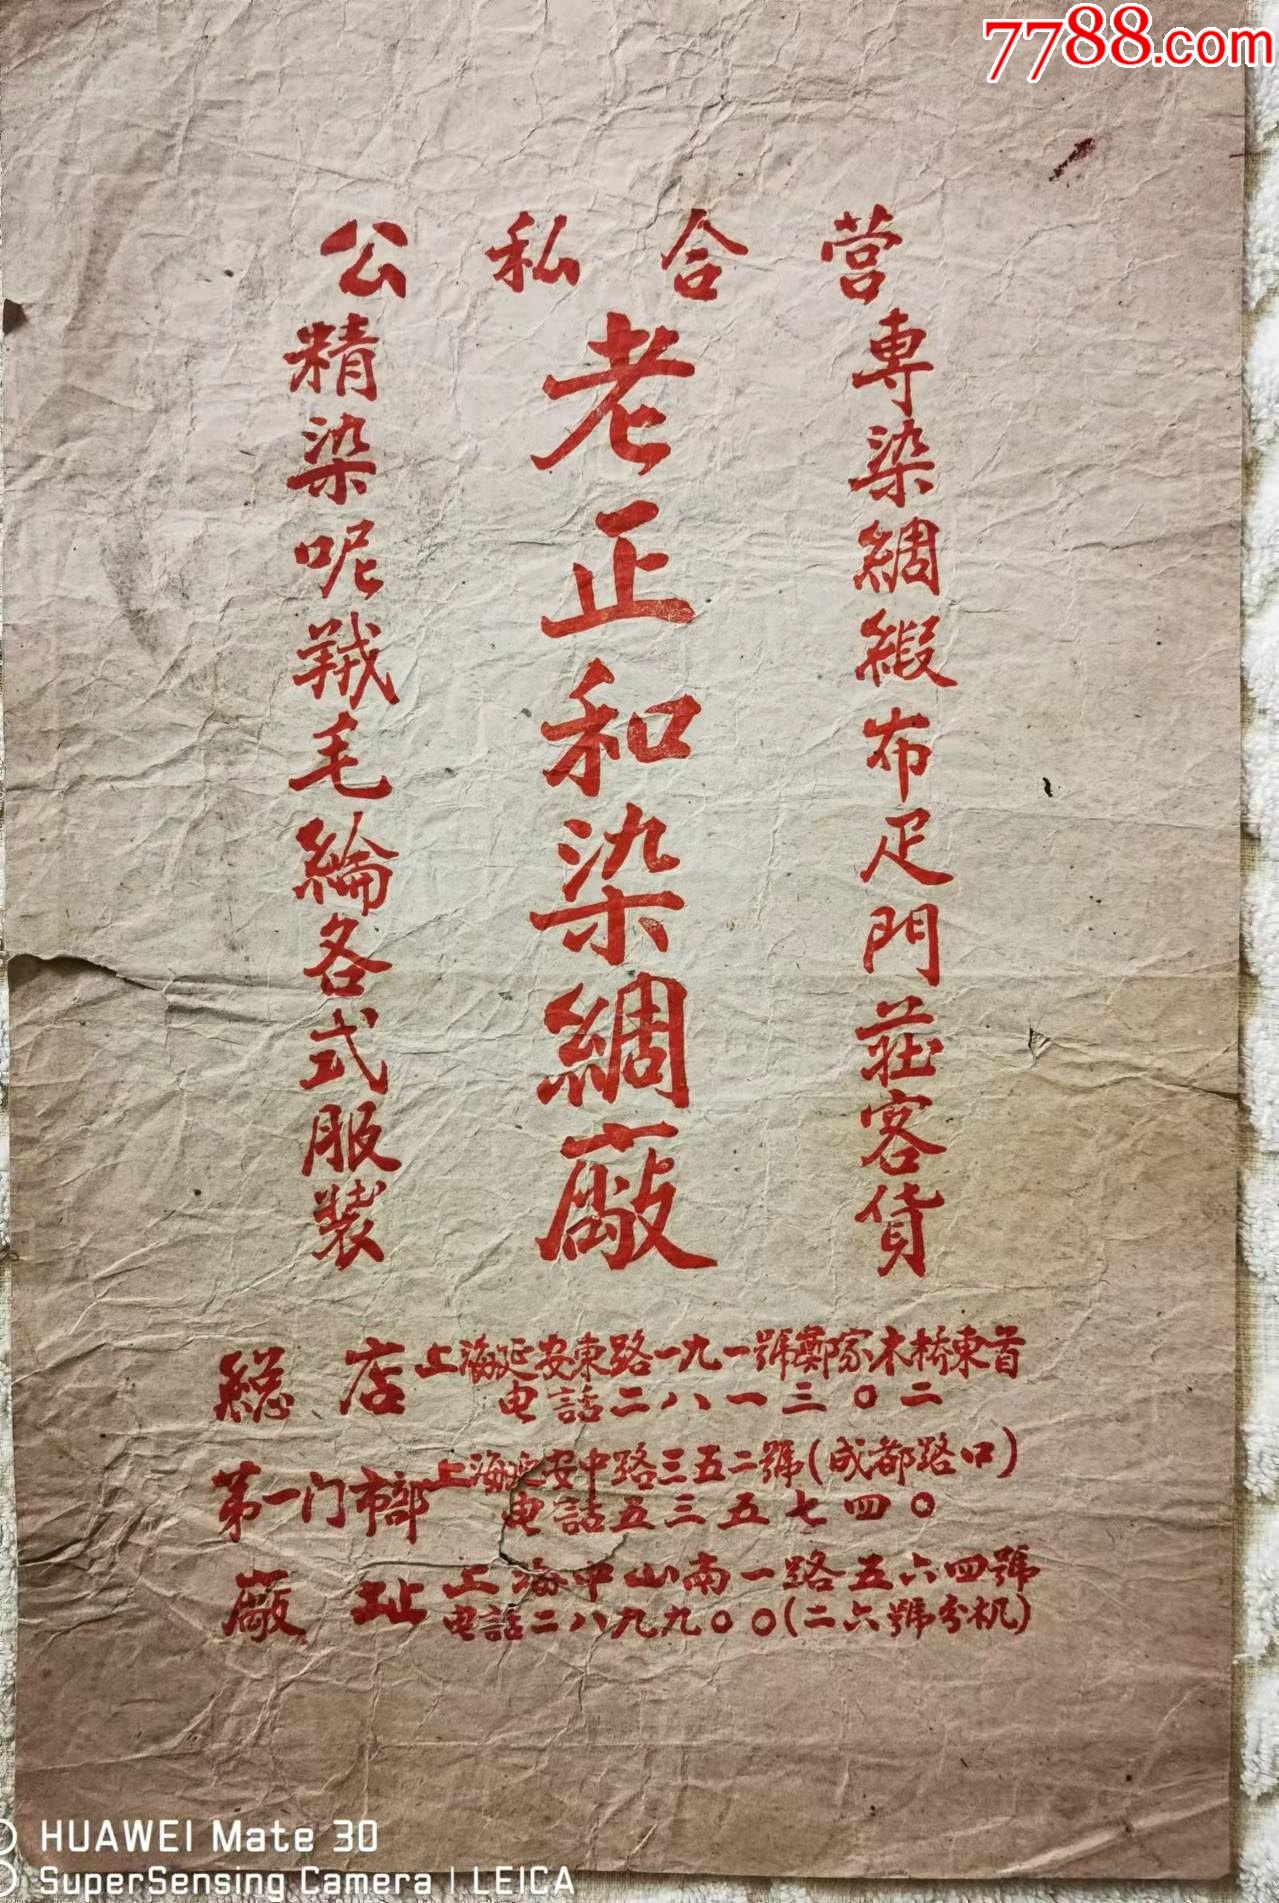 7788.com
公私合营
專染綢緞布疋門莊客貨
老正和染綢廠
精染呢羢毛綸各式服裝
總店 上海延安東路一九一號鄭家木桥東首
电話二八一三〇二
第一门市部 上海延安中路三五二號(成都路口)
电話五三五七四〇
廠址 上海中山南一路五六四號
电話二八九九〇〇(二六號分机)
HUAWEI Mate 30
SuperSensing Camera | LEICA